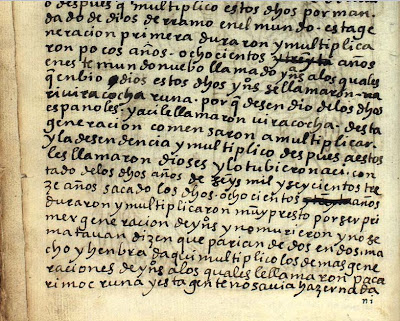 o despues q̃ multiplico estos dhos por man
dado de dios derramo en el mundo. esta ge
neracion primera duraron y multiplica
ron pocos años. ochocientos y treynta años
en este mundo nuebo llamado yn̄s a los quales
q̃ enbio dios estos dhos yn̄s se llamaron. ua
ri uira cocha runa. por q̃ desendio de los dhos
españoles. y aci le llamaron uira cocha. desta
generacion comensaron a multiplicar.
y la desendencia y multiplico despues a estos
les llamaron dioses y lo tubieron aci. con
tado de los dhos años de seys mil y seycientos tre
ze años sacado los dhos. ochocientos años
duraron y multiplicaron muy presto por ser pri
mer generacion de yn̄s y no murieron y no se
matauan dizen que parian de dos en dos ma
cho y henbra daqui multiplico los demas gene
raciones de yn̄s a los quales le llamaron paca
rimoc runa y esta gente no sauia hazer nada
ni